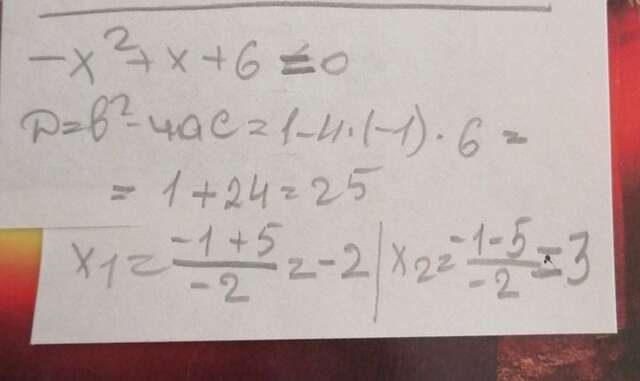 -x²+x+6≤0
D=b²-4ac=1-4·(-1)·6=
=1+24=25
x₁=(-1+5)/(-2)=-2 | x₂=(-1-5)/(-2)=3